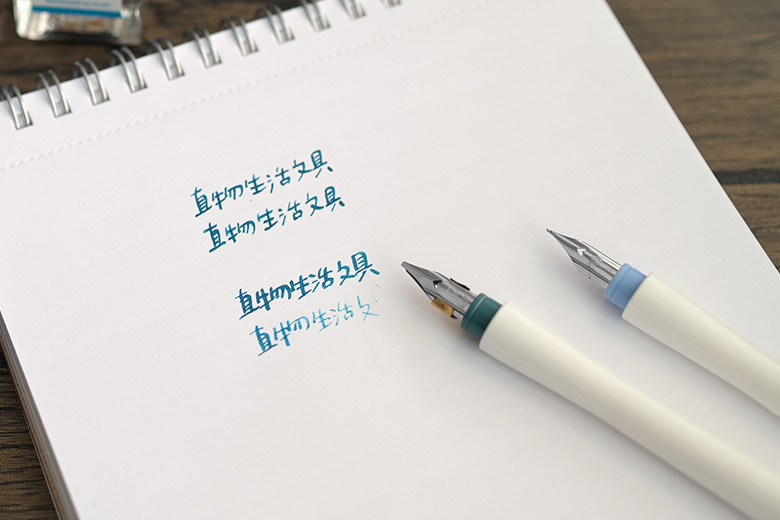 直物生活文具
直物生活文具
直物生活文具
直物生活文